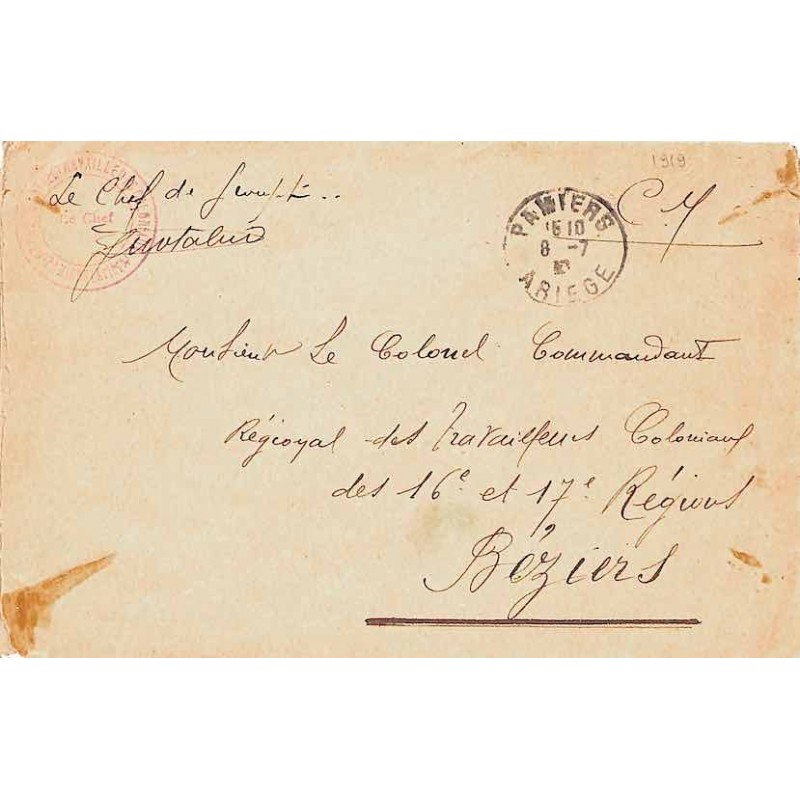 1919
Le Chef de
Le Chef
C M
PAMIERS
15 10
8 -7
ARIEGE
Monsieur Le Colonel Commandant
Régional des Travailleurs Coloniaux
des 16e et 17e Régions
Béziers